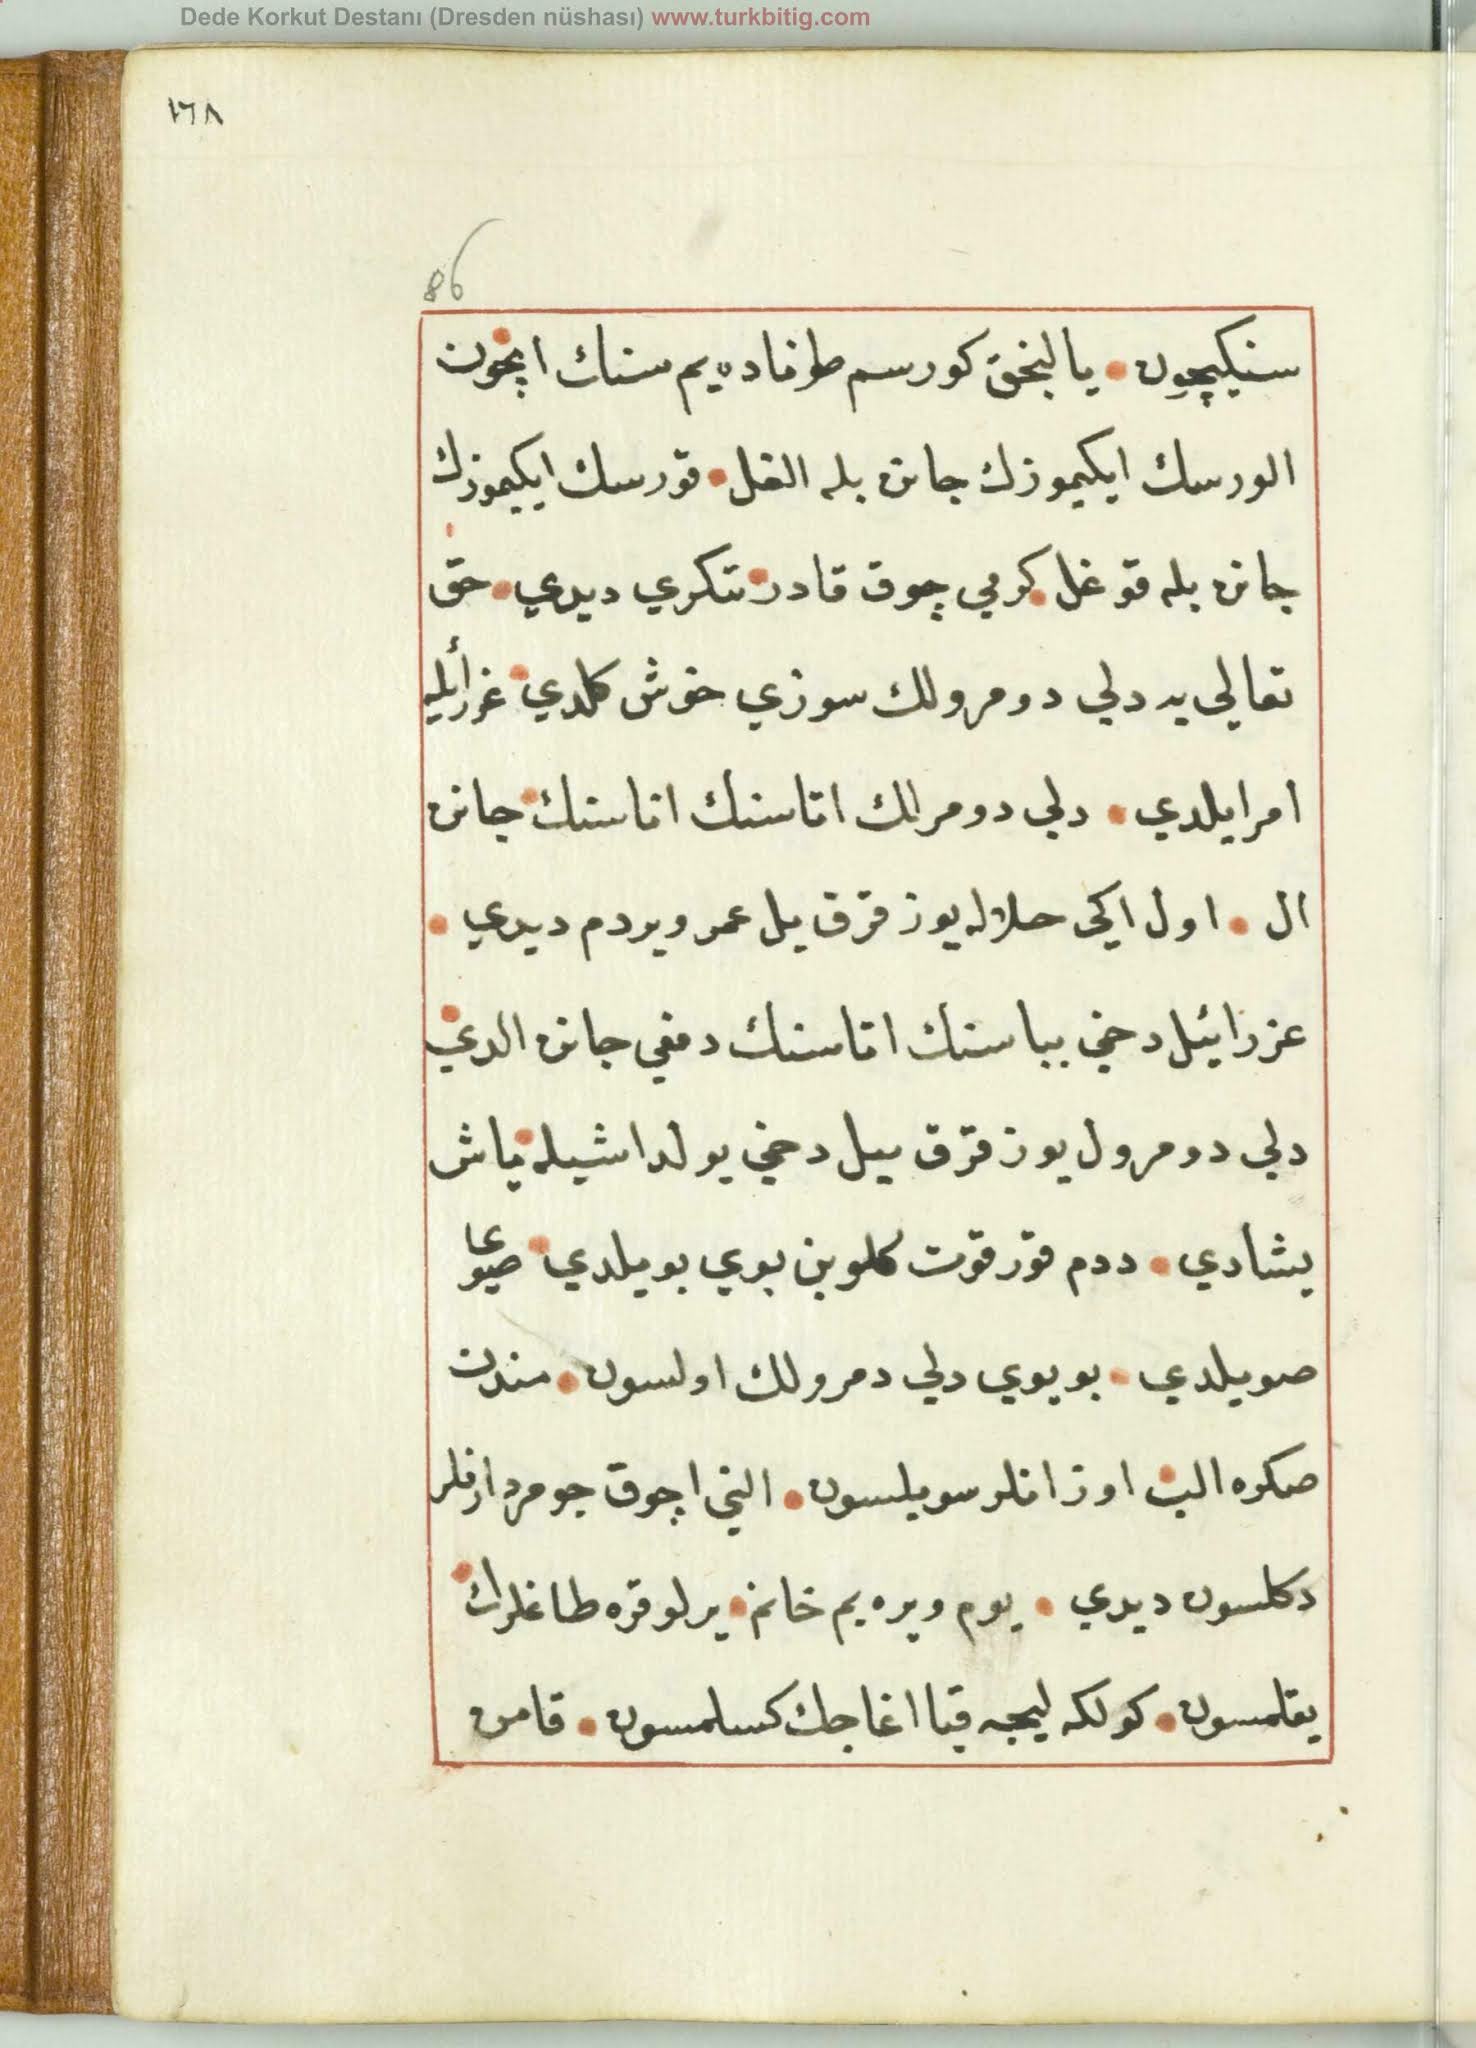 Dede Korkut Destanı (Dresden nüshası) www.turkbitig.com
١٦٨
86
سنیکیچون • یالنجق کورسم طوناده یم سنك ایچون
الورسك ایکیموزك جانن بله الغل • قورسك ایکیموزك
جانن بله قوغل • کرمی چوق قادر تنکری دیدي • حق
تعالی یه دلی دومرولك سوزي خوش کلدي • عزرائله
امر ایلدي • دلی دومرلك اتاسنك اناسنك جانن
ال • اول ایکی حلاله یوز قرق یل عمر ویردم دیدي •
عزرائیل دخی بباسنك اناسنك دفعی جانن الدي
دلی دومرول یوز قرق ییل دخی یولداشیله یاش
یشادي • ددم قورقوت کلوبن بوي بویلدي •
صویلدي • بو بوي دلی دمرولك اولسون • مندن
صکره الب اوزانلر سویلسون • النی اچوق جومرد ارنلر
دکلسون دیدي • یوم ویره یم خانم • یرلو قره طاغلرك
یقلمسون • کولکه لیجه قبا اغاجك کسلمسون • قامن